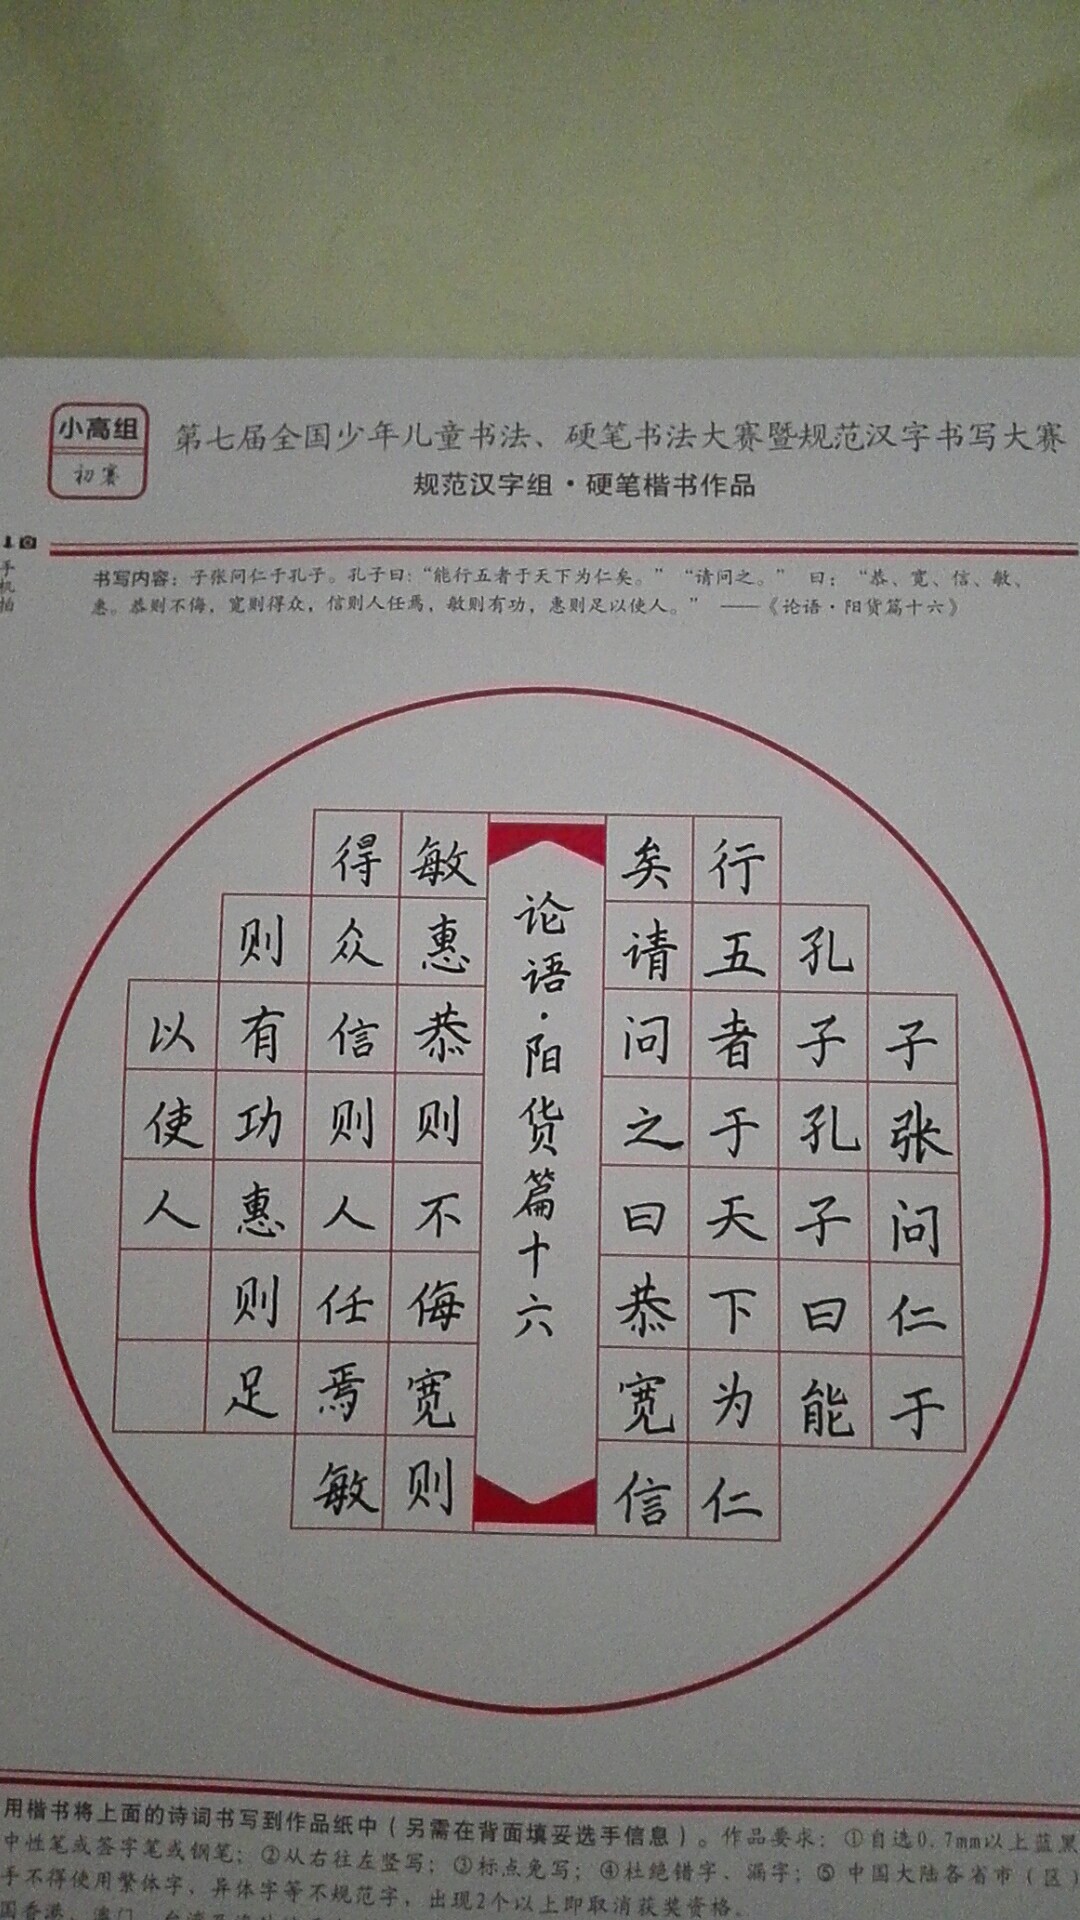 小高组
初赛
第七届全国少年儿童书法、硬笔书法大赛暨规范汉字书写大赛
规范汉字组·硬笔楷书作品
手机拍
书写内容：子张问仁于孔子。孔子曰：“能行五者于天下为仁矣。” “请问之。” 曰：“恭、宽、信、敏、
惠。恭则不侮，宽则得众，信则人任焉，敏则有功，惠则足以使人。” ——《论语·阳货篇十六》
子张问仁于
孔子孔子曰能
行五者于天下为仁
矣请问之曰恭宽信
论语·阳货篇十六
敏惠恭则不侮宽则
得众信则人任焉敏
则有功惠则足
以使人
用楷书将上面的诗词书写到作品纸中（另需在背面填妥选手信息）。作品要求：①自选0.7mm以上蓝黑
中性笔或签字笔或钢笔；②从右往左竖写；③标点免写；④杜绝错字、漏字；⑤中国大陆各省市（区）
手不得使用繁体字，异体字等不规范字，出现2个以上即取消获奖资格。
国香港、澳门、台湾